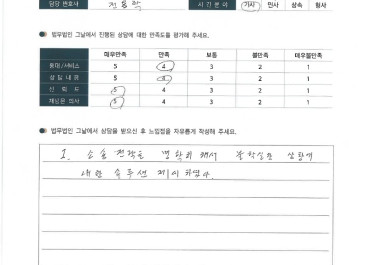 담당 변호사 전용학 사건분야 가사 민사 상속 형사
법무법인 그날에서 진행된 상담에 대한 만족도를 평가해 주세요.
매우만족 만족 보통 불만족 매우불만족
응대/서비스 5 4 3 2 1
상담내용 5 4 3 2 1
신뢰도 5 4 3 2 1
재방문 의사 5 4 3 2 1
법무법인 그날에서 상담을 받으신 후 느낌점을 자유롭게 작성해 주세요.
1. 소송 전략을 명확히 해서 불확실한 상황에
대한 솔루션 제시 하였다.